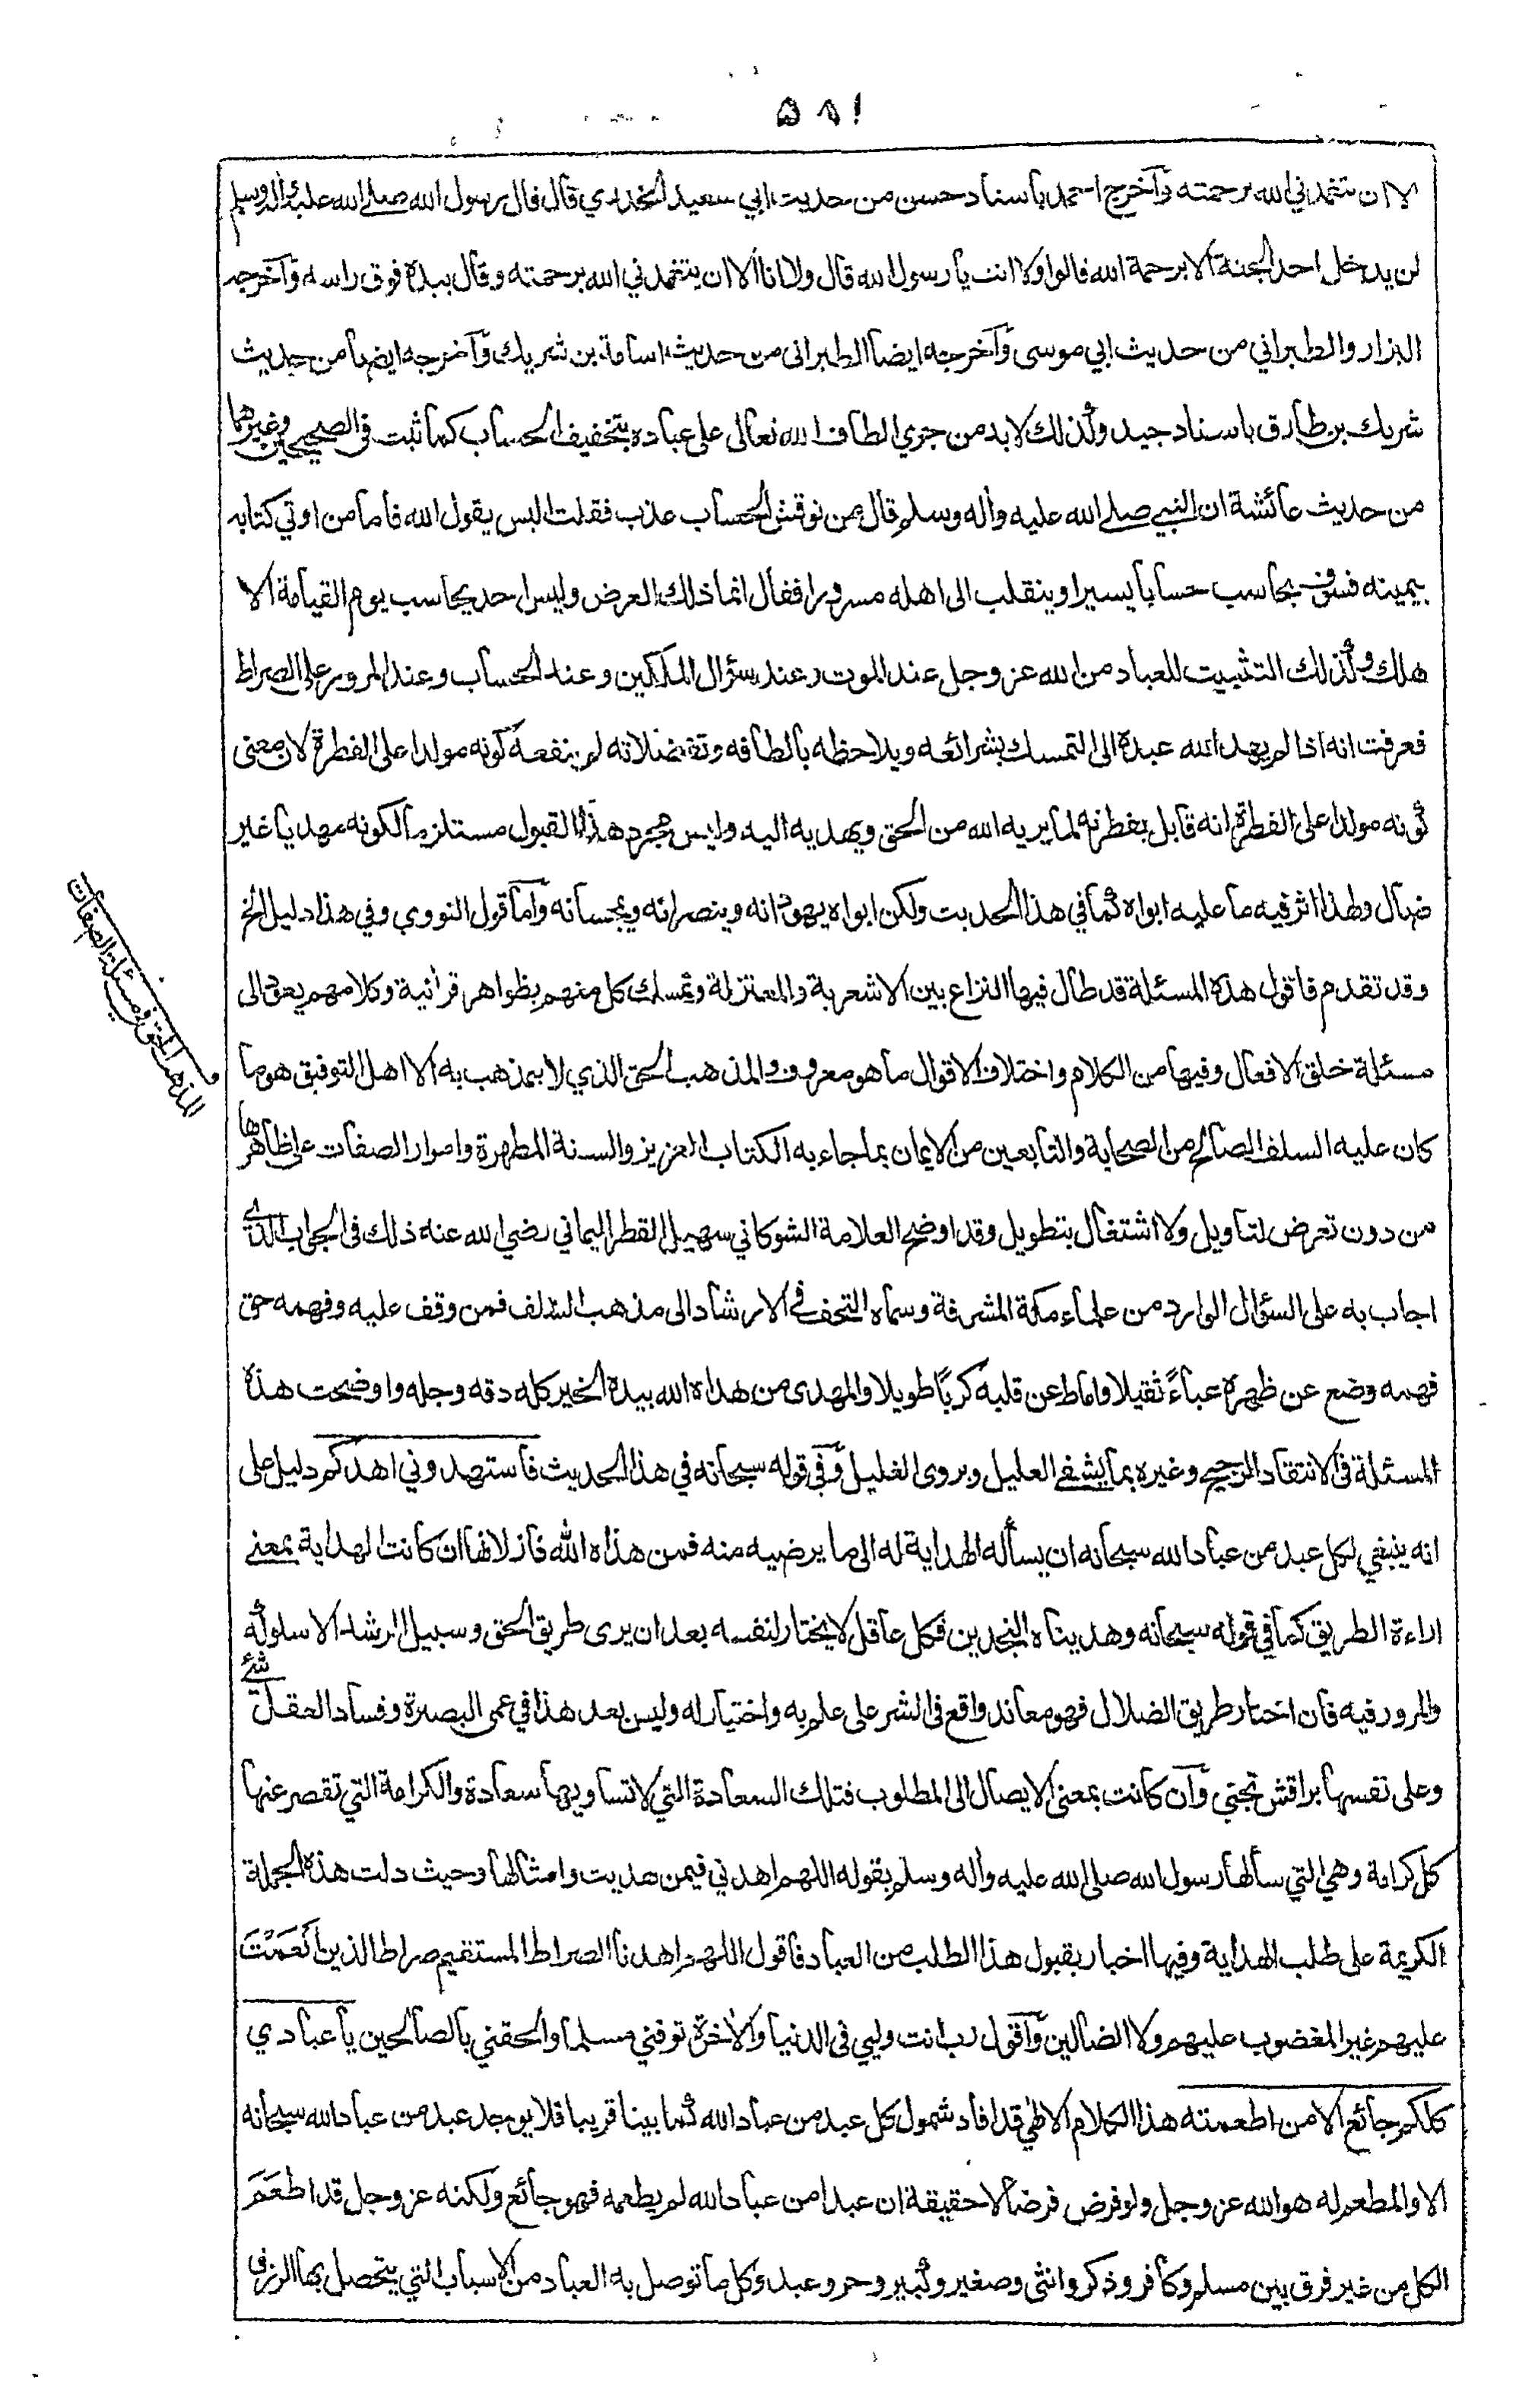 ٥٨١
الا ان يتغمدني الله برحمته وآخرج احمد بأسناد حسن من حديث ابي سعيد الخدري قال قال رسول الله صلى الله عليه وأله وسلم
لن يدخل احد الجنة الا برحمة الله قالوا ولا انت يأ رسول الله قال ولا انا الا ان يتغمدني الله برحمته وقال بيده فوق راسه وآخرجه
البزار والطبراني من حديث ابي موسى وآخرجه ايضا الطبراني من حديث اسامة بن شريك وآخرجه ايضا من حديث
شريك بن طارق باسناد جيد وكذلك لا بد من جري الطاف الله تعالى على عباده بتخفيف الحساب كما ثبت في الصحيحين وغيرهما
من حديث عائشة ان النبي صلى الله عليه وأله وسلم قال من نوقش الحساب عذب فقلت اليس يقول الله فاما من اوتي كتابه
بيمينه فسوف يحاسب حسابا يسيرا وينقلب الى اهله مسرورا فقال انما ذلك العرض وليس احد يحاسب يوم القيامة الا
هلك وكذلك التثبيت للعباد من الله عز وجل عند الموت وعند سؤال الملكين وعند الحساب وعند المرور على الصراط
فعرفت انه اذا لم يهد الله عبده الى التمسك بشرائعه ويلاحظه بألطافه وتفضلاته لم ينفعه كونه مولدا على الفطرة لان معنى
كونه مولدا على الفطرة انه قابل بفطرته لما يريه الله من الحق ويهديه اليه وليس مجرد هذا القبول مستلزما لكونه مهديا غير
ضال ولهذا اثر فيه ما عليه ابواه كما في هذا الحديث ولكن ابواه يهودانه وينصرانه ويمجسانه وآما قول النووي وفي هذا دليل الخ
وقد تقدم فاقول هذه المسئلة قد طال فيها النزاع بين الاشعرية والمعتزلة وتمسك كل منهم بظواهر قرأنية وكلامهم يعود الى
مسئلة خلق الافعال وفيها من الكلام واختلاف الاقوال ما هو معروف والمذهب الحق الذي لا يذهب به الا اهل التوفيق هو ما
كان عليه السلف الصالح من الصحابة والتابعين من الايمان بما جاء به الكتاب العزيز والسنة المطهرة وامرار الصفات على ظاهرها
من دون تعرض لتأويل ولا اشتغال بتطويل وقد اوضح العلامة الشوكاني سهيل القطر اليماني رضي الله عنه ذلك في الجواب الذي
اجاب به على السؤال الوارد من علماء مكة المشرفة وسماه التحف في الارشاد الى مذهب السلف فمن وقف عليه وفهمه حق
فهمه وضع عن ظهره عباءً ثقيلا واماط عن قلبه كربًا طويلا والمهدى من هداه الله بيده الخير كله دقه وجله واوضحت هذه
المسئلة في الانتقاد الرجيح وغيره بما يشفي العليل ويروى الغليل وفي قوله سبحانه في هذا الحديث فأستهدوني اهدكم دليل على
انه ينبغي لكل عبد من عباد الله سبحانه ان يسأله الهداية له الى ما يرضيه منه فمن هذاه الله فاز لانها ان كانت الهداية بمعنى
اراءة الطريق كما في قوله سبحانه وهديناه النجدين فكل عاقل لا يختار لنفسه بعد ان يرى طريق الحق وسبيل الرشاد الا سلوكه
والمرور فيه فان اختار طريق الضلال فهو معاند واقع في الشر على علم به واختيار له وليس بعد هذا في عمى البصيرة وفساد العقل شئ
وعلى نفسها براقش تجني وآن كانت بمعنى الايصال الى المطلوب فتلك السعادة التي لا تساويها سعادة والكرامة التي تقصر عنها
كل كرامة وهي التي سألها رسول الله صلى الله عليه وأله وسلم بقوله اللهم اهدني فيمن هديت وامثالها وحيث دلت هذه الجملة
الكريمة على طلب الهداية وفيها اخبار بقبول هذا الطلب من العباد فأقول اللهم اهدنا الصراط المستقيم صراط الذين أنعمت
عليهم غير المغضوب عليهم ولا الضالين وآقول رب انت وليي في الدنيا والأخرة توفني مسلما والحقني بالصالحين يأ عبادي
كلكم جائع الا من اطعمته هذا الكلام الالهي قد افاد شمول كل عبد من عباد الله كما بينا قريبا فلا يوجد عبد من عباد الله سبحانه
الا والمطعم له هو الله عز وجل ولو فرض فرضا لا حقيقة ان عبدا من عباد الله لم يطعمه فهو جائع ولكنه عز وجل قد اطعم
الكل من غير فرق بين مسلم وكافر وذكر وانثى وصغير وكبير وحر وعبد وكل ما توصل به العباد من الاسباب التي يتحصل بها الرزق
المذهب الحق في مسئلة الصفات